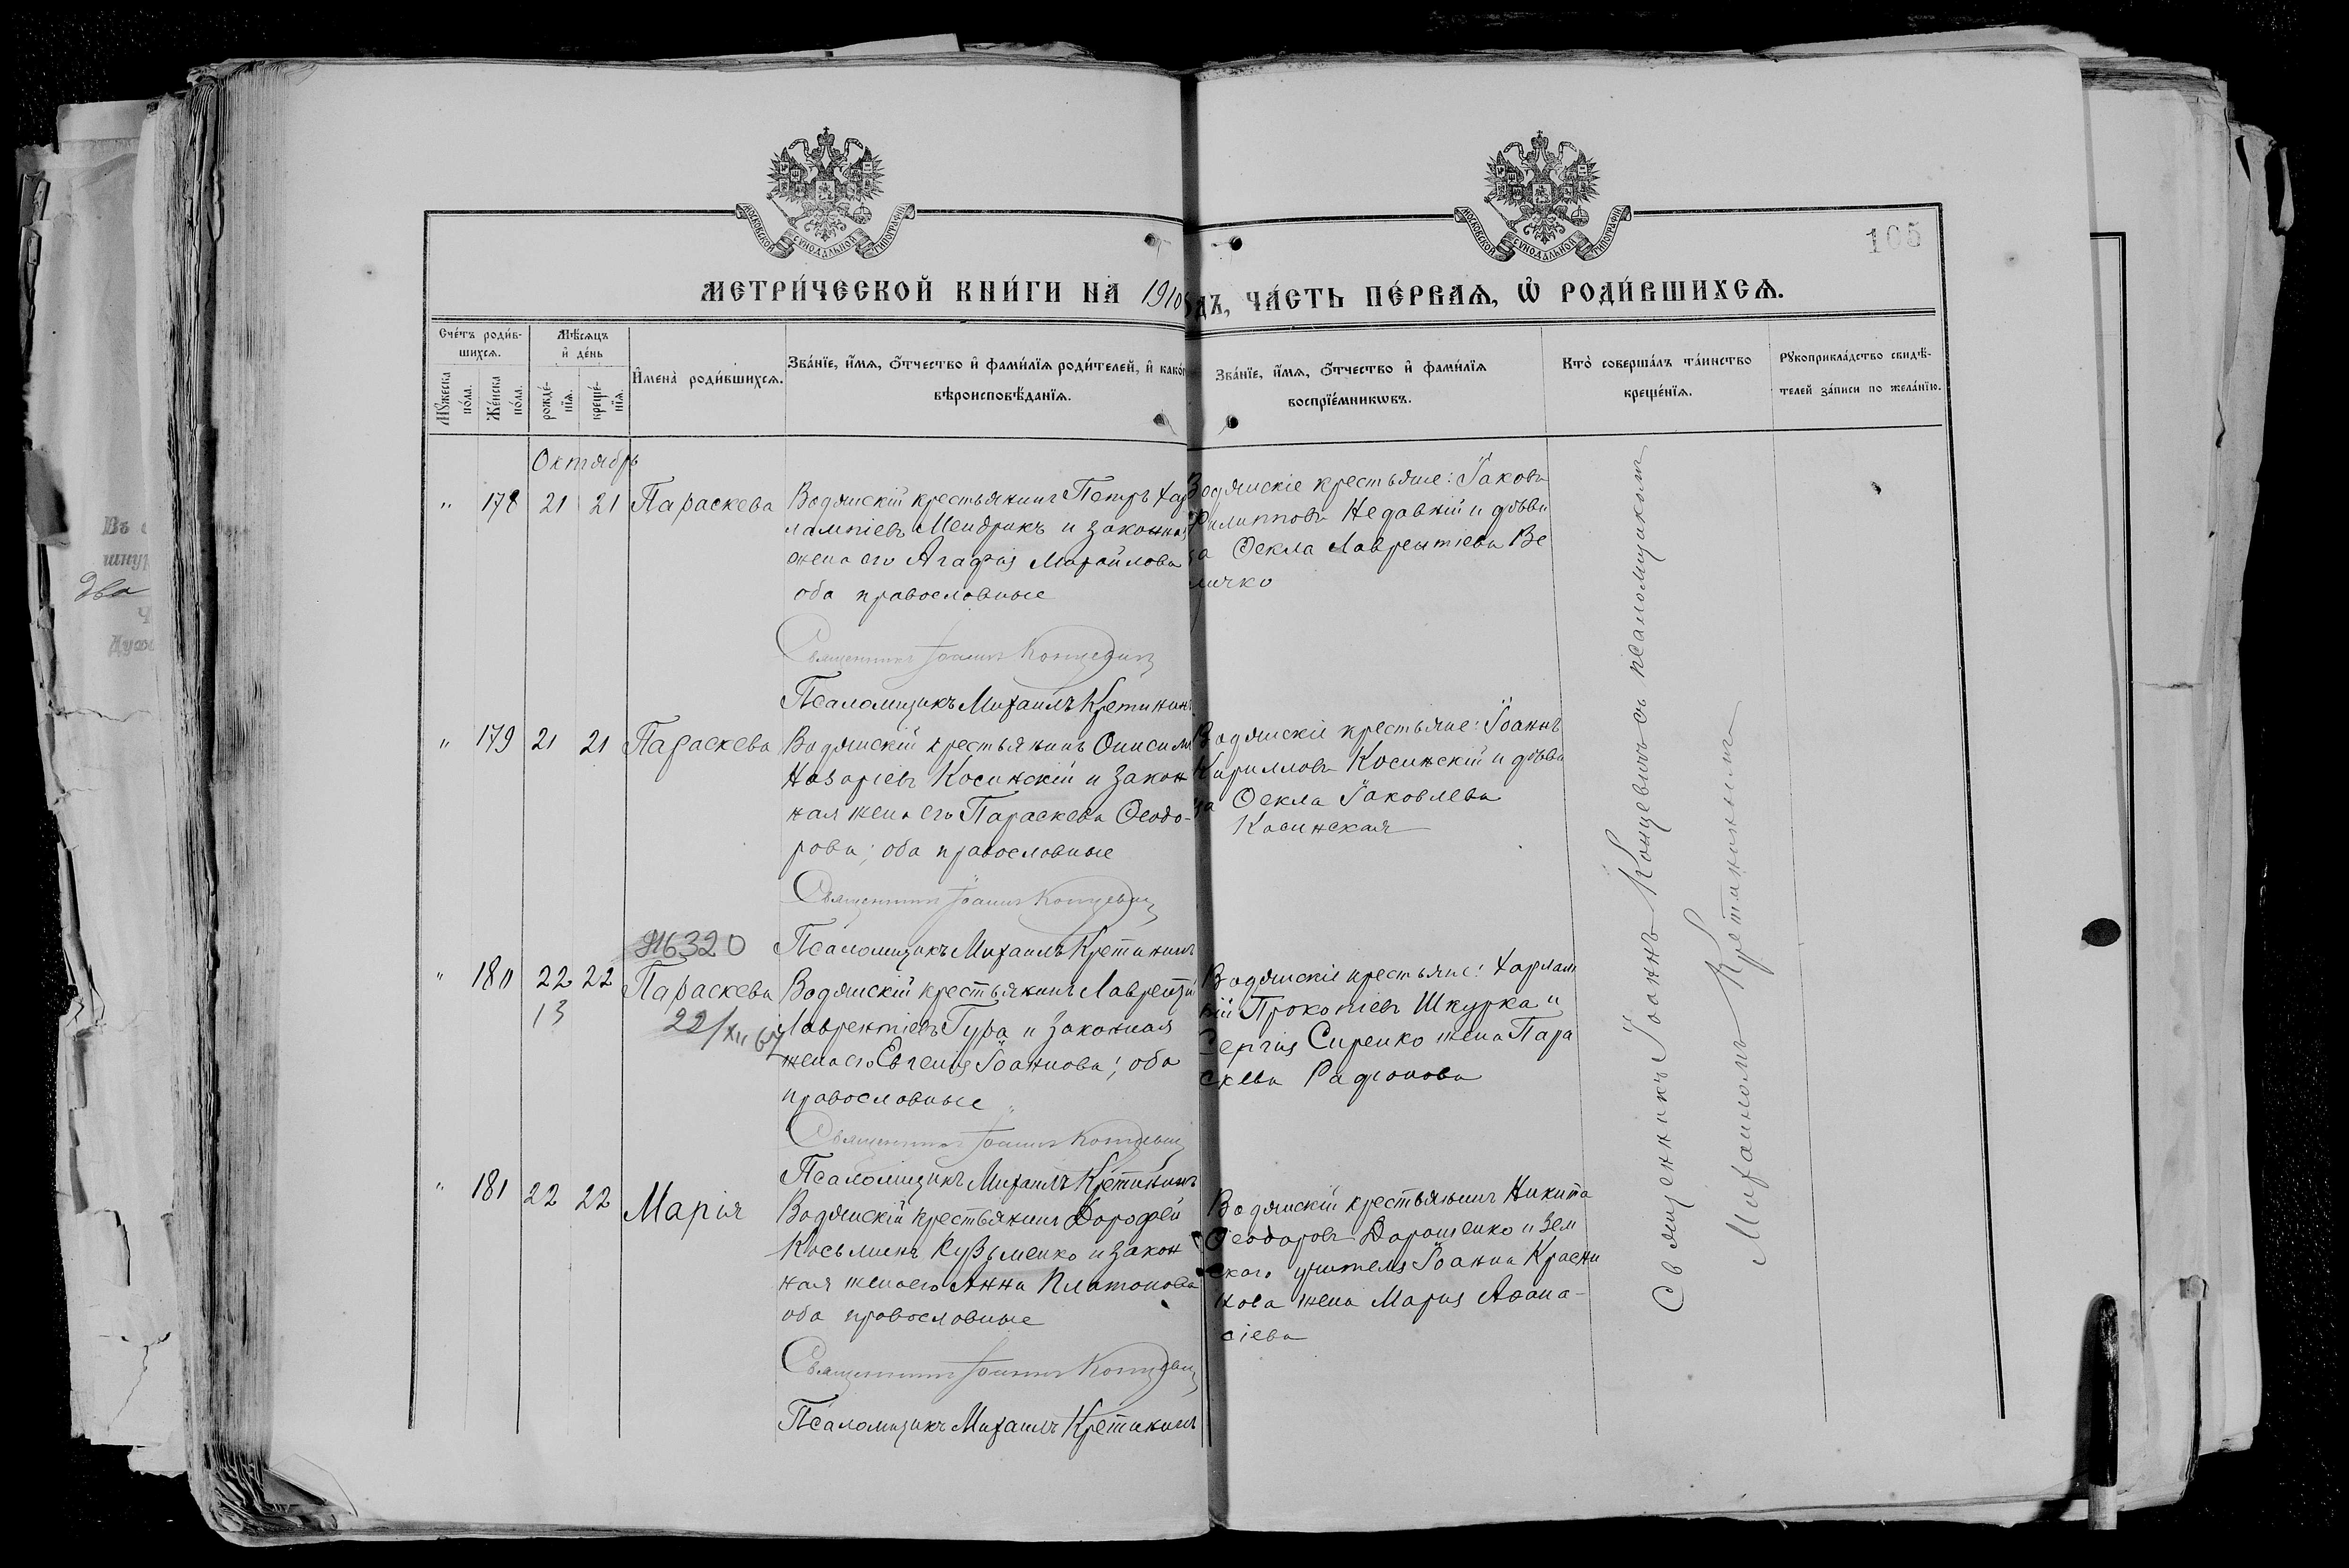 МОСКОВСКОЙ СѴНОДАЛЬНОЙ ТИПОГРАФІИ
МОСКОВСКОЙ СѴНОДАЛЬНОЙ ТИПОГРАФІИ
105
МЕТРИ́ЧЕСКОЙ КНИ́ГИ НА 1910 ДЪ, ЧА́СТЬ ПЕ́РВАѦ, Ѡ РОДИ́ВШИХСѦ.
Сче́тъ роди́в-
шихсѧ.
Мѣ́сѧцъ
и҆ де́нь
Мꙋ́жеска
по́ла.
Же́нска
по́ла.
рожде́-
нїѧ.
креще́-
нїѧ.
И҆мена̀ роди́вшихсѧ.
Зва́нїе, и҆́мѧ, ѻ҆́тчество и҆ фами́лїѧ роди́телей, и҆ како́
вѣроисповѣ́данїѧ.
Зва́нїе, и҆́мѧ, ѻ҆́тчество и҆ фами́лїѧ
воспрїе́мникѡвъ.
Кто̀ соверша́лъ та́инство
креще́нїѧ.
Рꙋкоприкла́дство свидѣ́-
телей за́писи по жела́нїю.
Октябрь
" 178 21 21 Параскева
Водянскій крестьянинъ Петръ Хар
лампіевъ Мендрикъ и законная
жена его Агафія Михайлова
оба православные
Священникъ Іоаннъ Концевичъ
Псаломщикъ Михаилъ Кретининъ
Водянскіе крестьяне: Іаковъ
Филипповъ Недавній и дѣви
ца Ѳекла Лаврентіева Ве
личко
" 179 21 21 Параскева
Водянскій крестьянинъ Онисимъ
Назаріевъ Косинскій и закон
ная жена его Параскева Ѳеодо-
рова; оба православные
Священникъ Іоаннъ Концевичъ
Псаломщикъ Михаилъ Кретининъ
Водянскіе крестьяне: Іоаннъ
Кирилловъ Косинскій и дѣви
ца Ѳекла Іаковлева
Косинская
16320
" 180 22 22 Параскева
13
22/XII 67
Водянскій крестьянинъ Лаврентій
Лаврентіевъ Гура и законная
жена его Евгенія Іоаннова; оба
православные
Священникъ Іоаннъ Концевичъ
Псаломщикъ Михаилъ Кретининъ
Водянскіе крестьяне: Харлам
пій Прокопіевъ Шкурка и
Сергія Сиренко жена Пара
скева Радіонова
" 181 22 22 Марія
Водянскій крестьянинъ Дорофей
Косьминъ Кузьменко и закон
ная жена его Анна Платонова
оба православные
Священникъ Іоаннъ Концевичъ
Псаломщикъ Михаилъ Кретининъ
Водянскій крестьянинъ Никита
Ѳеодоровъ Дорошенко и зем
скаго учителя Іоанна Красни
кова жена Марія Аѳана-
сіева
Священникъ Іоаннъ Концевичъ съ псаломщикомъ
Михаиломъ Кретининымъ
Въ
шнур
два
Ч